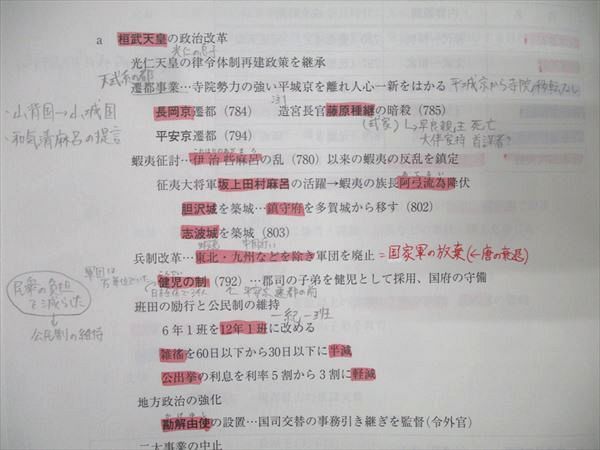 a 桓武天皇の政治改革
光仁の息子
光仁天皇の律令体制再建政策を継承
天武系の都
遷都事業…寺院勢力の強い平城京を離れ人心一新をはかる 平城京から寺院の移転なし
・山背国→山城国
長岡京遷都（784） 造宮長官藤原種継の暗殺（785）
（式家）↳早良親王 死亡
大伴家持 首謀者?
・和気清麻呂の提言
平安京遷都（794）
これはりのあざまろ
蝦夷征討…伊治呰麻呂の乱（780）以来の蝦夷の反乱を鎮定
あてるい
征夷大将軍坂上田村麻呂の活躍→蝦夷の族長阿弖流為降伏
胆沢城を築城…鎮守府を多賀城から移す（802）
志波城を築城（803）
兵制改革…東北・九州などを除き軍団を廃止 =国家軍の放棄(←唐の衰退)
軍団は
こんでい
健児の制（792）…郡司の子弟を健児として採用、国府の守備
平安京遷都の前
民衆の負担
を減らした
公民制の維持
班田の励行と公民制の維持
一紀一班
6年1班を12年1班に改める
雑徭を60日以下から30日以下に半減
公出挙の利息を利率5割から3割に軽減
地方政治の強化
かげゆし
勘解由使の設置…国司交替の事務引き継ぎを監督（令外官）
二大事業の中止